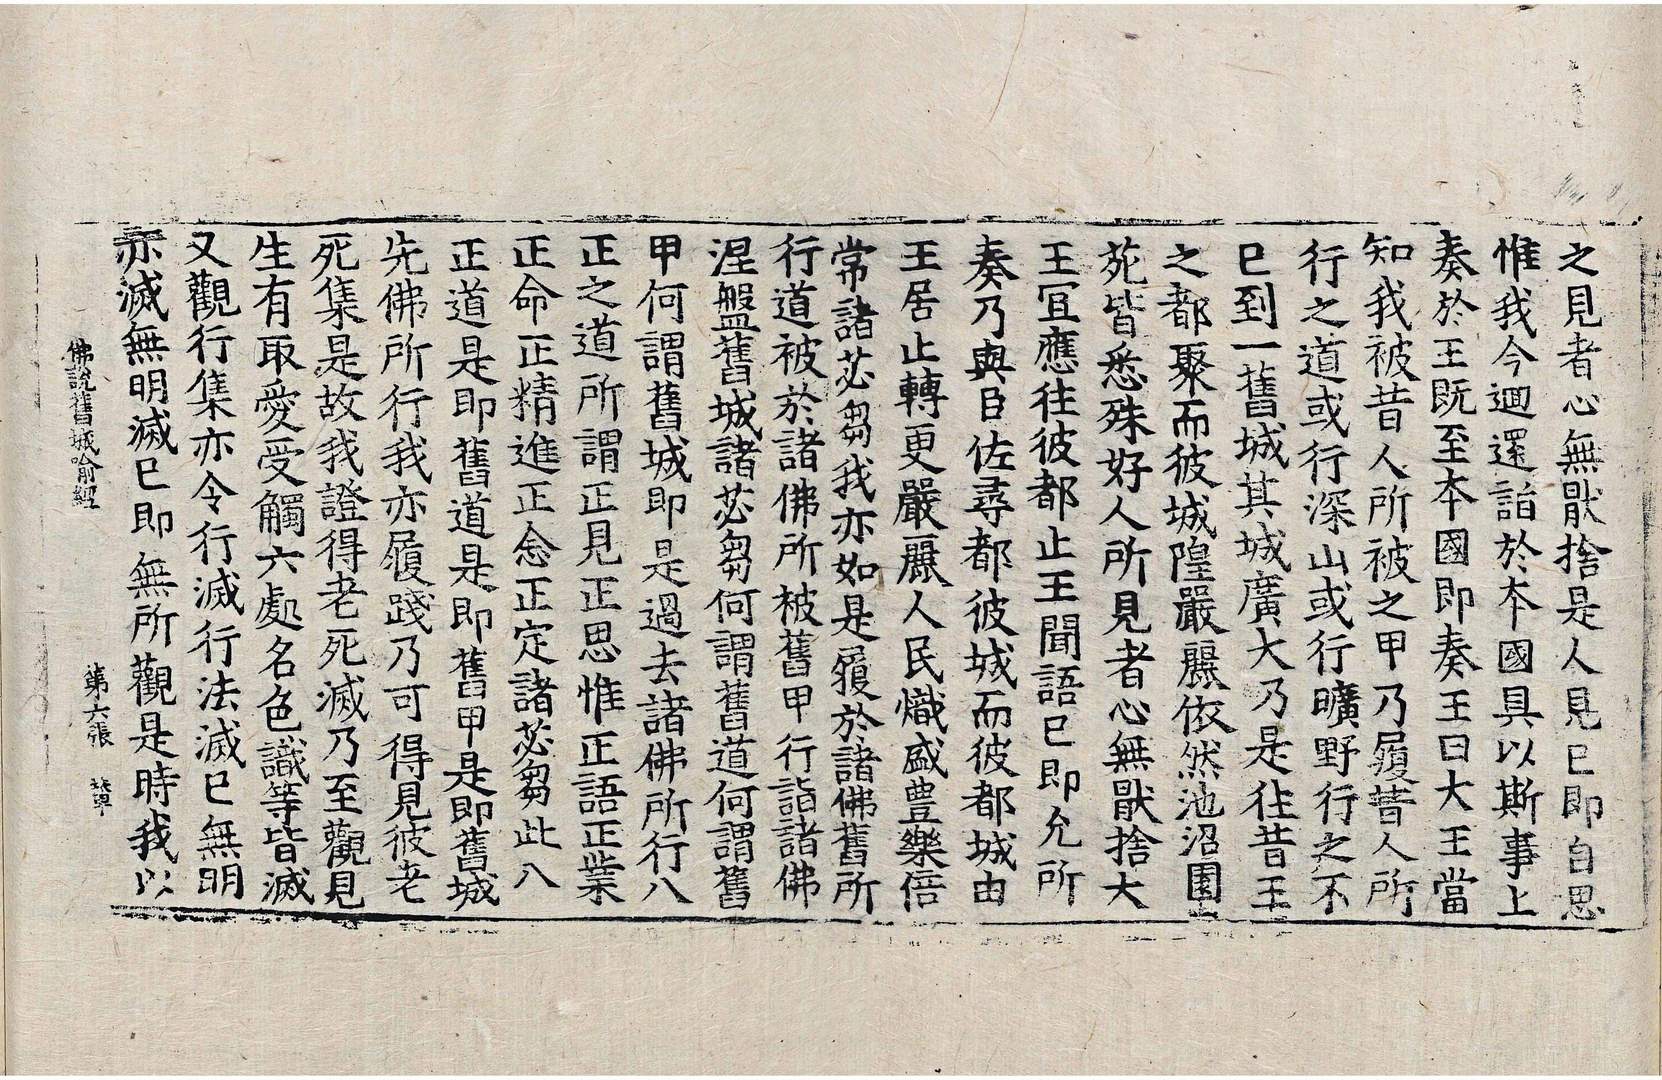 之見者心無猒捨是人見已即自思
惟我今迴還詣於本國具以斯事上
奏於王既至本國即奏王曰大王當
知我被昔人所被之甲乃履昔人所
行之道或行深山或行曠野行之不
已到一舊城其城廣大乃是往昔王
之都聚而彼城隍嚴麗依然池沼園
苑皆悉殊好人所見者心無猒捨大
王宜應往彼都止王聞語已即允所
奏乃與臣佐尋都彼城而彼都城由
王居止轉更嚴麗人民熾盛豊樂倍
常諸苾芻我亦如是履於諸佛舊所
行道被於諸佛所被舊甲行詣諸佛
涅盤舊城諸苾芻何謂舊道何謂舊
甲何謂舊城即是過去諸佛所行八
正之道所謂正見正思惟正語正業
正命正精進正念正定諸苾芻此八
正道是即舊道是即舊甲是即舊城
先佛所行我亦履踐乃可得見彼老
死集是故我證得老死滅乃至觀見
生有取愛受觸六處名色識等皆滅
又觀行集亦令行滅行法滅已無明
亦滅無明滅已即無所觀是時我以
佛說舊城喻經 第六張 輦